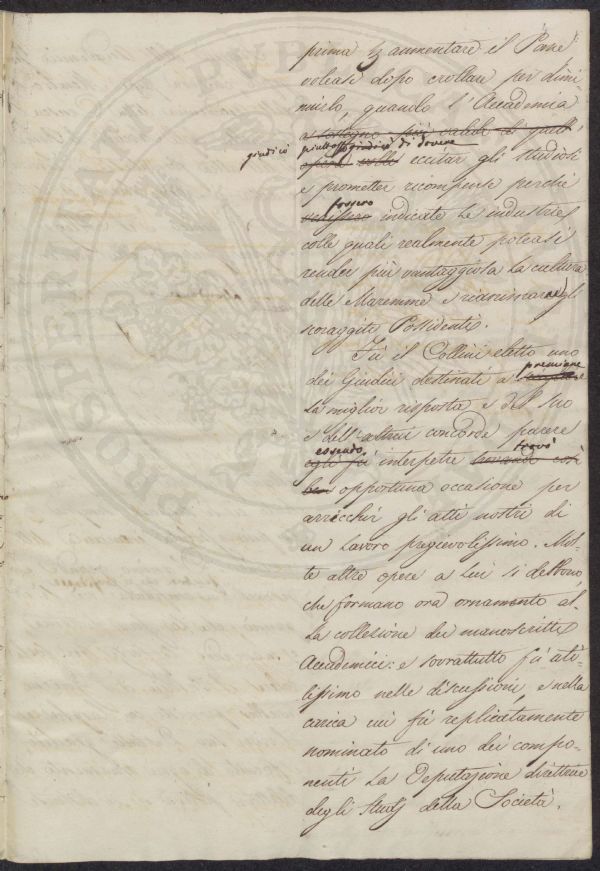 prima di aumentare il Pane
voleasi dopo crollare per dimi
nuirlo, quando l'Accademia
a sostegno più valido di quell'
giudicò piuttosto giudicò di dovere
eccitar gli studiosi
e prometter ricompense perchè
fossero
venissero indicate le industrie
colle quali realmente poteasi
render più vantaggiosa la cultura
delle Maremme e rianimare gli
scoraggiti Possidenti.
Fù il Collini eletto uno
premiare
dei Giudici destinati a
la miglior risposta e del suo
e dell'altrui concorde parere
essendo trovò
egli fù interpetre trovando così
ben opportuna occasione per
arricchir gli atti nostri di
un Lavoro pregievolissimo. Mol-
te altre opere a Lui si debbono,
che formano ora ornamento al-
la collezione dei manoscritti
Accademici: e sovrattutto fù uti-
lissimo nelle discussioni, e nella
carica cui fù replicatamente
nominato di uno dei compo-
nenti la Deputazione direttrice
degli Studj della Società.